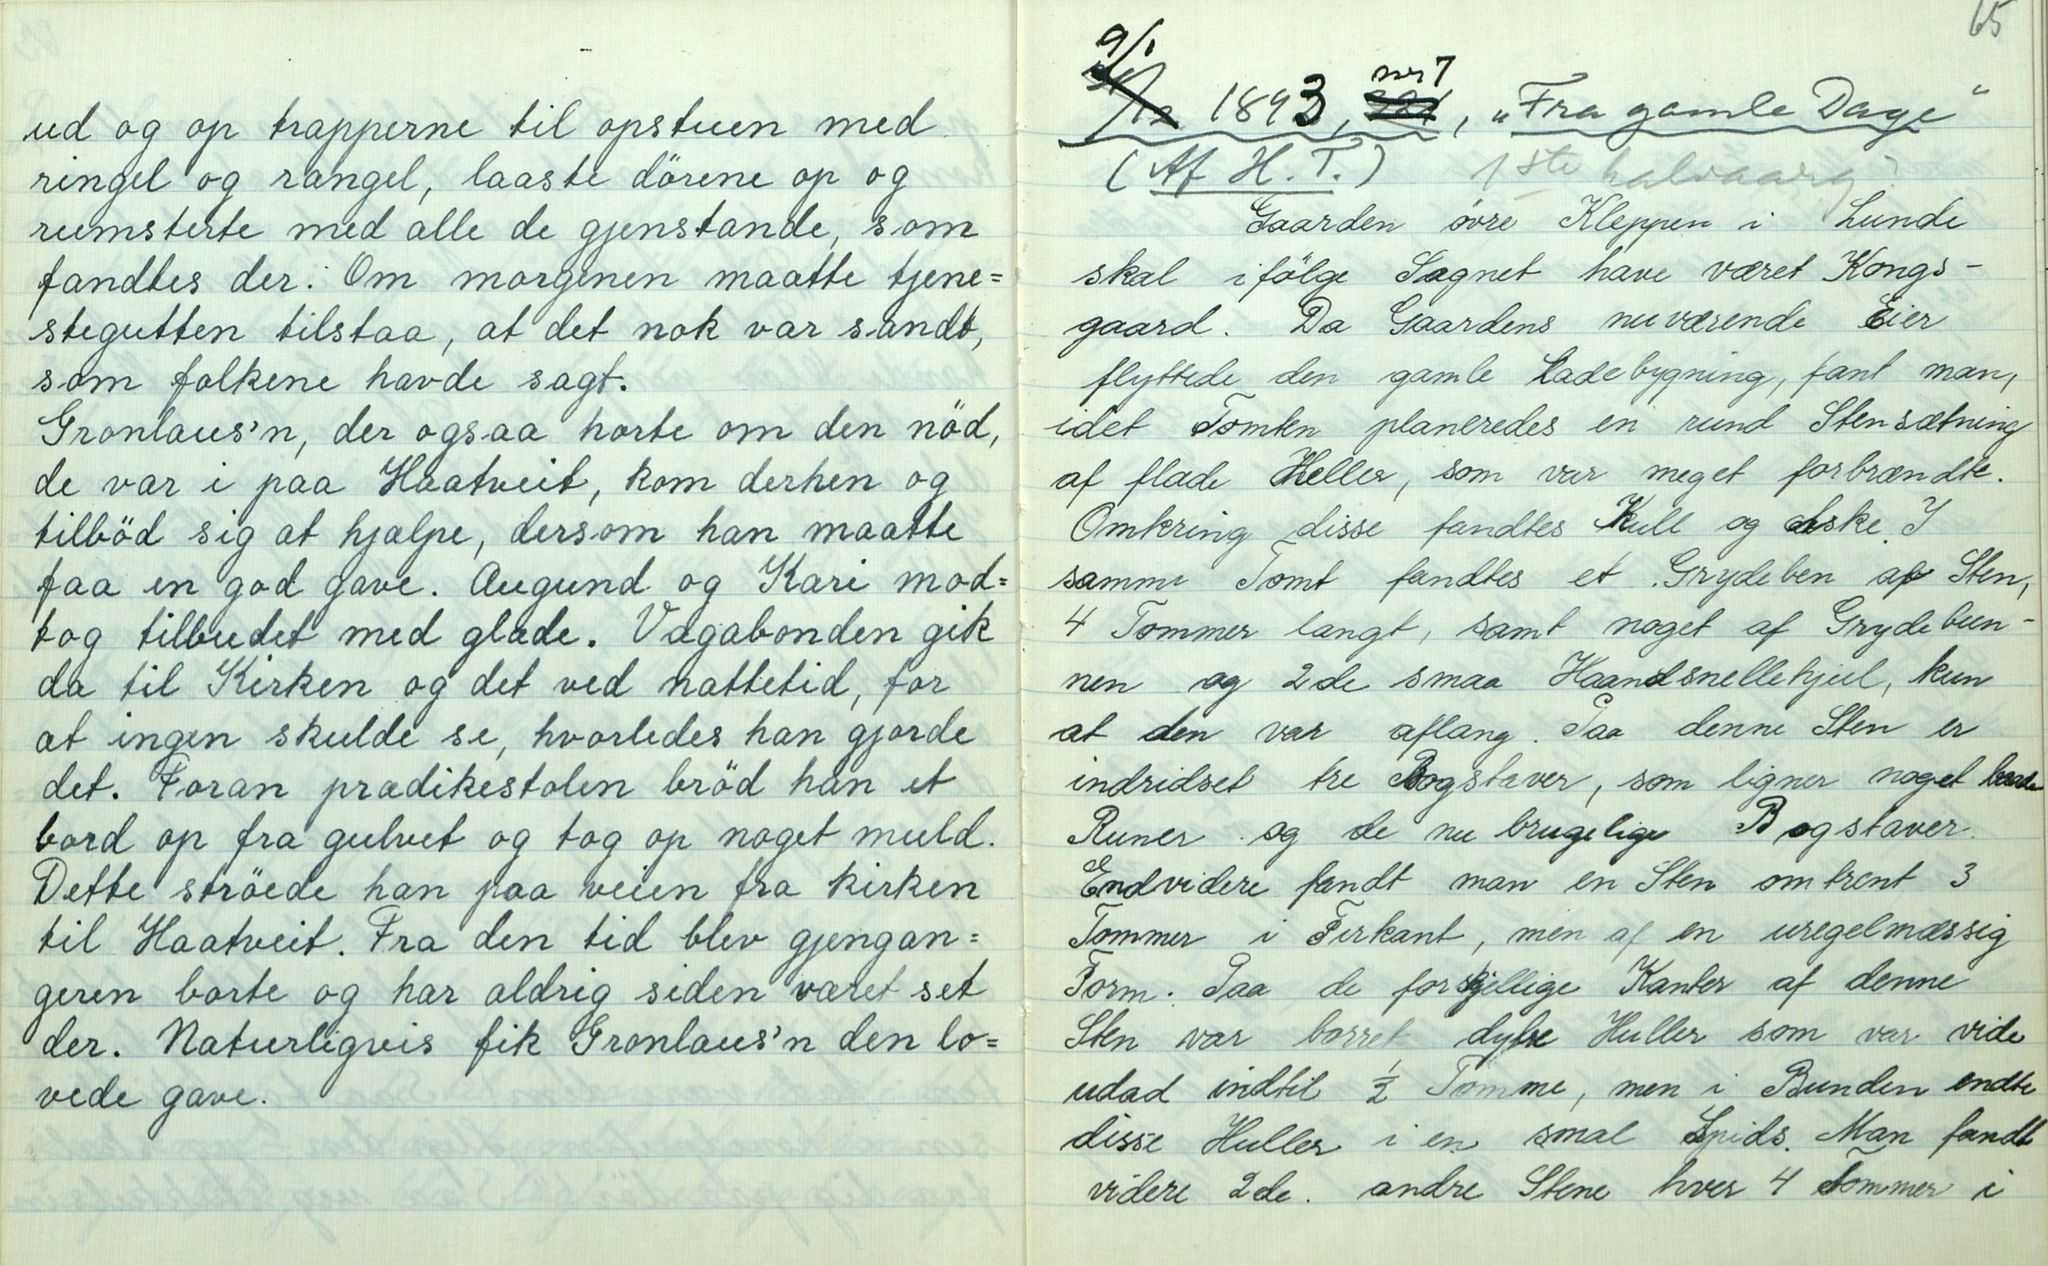 ud og op trapperne til opstuen med
ringel og rangel, laaste dörene op og
rumsterte med alle de gjenstande, som
fandtes der. Om morgenen maatte tjene=
stegutten tilstaa, at det nok var sandt,
som folkene havde sagt.
Gronlaus'n, der ogsaa horte om den nöd,
de var i paa Haatveit, kom derhen og
tilböd sig at hjælpe, dersom han maatte
faa en god gave. Augund og Kari mod=
tog tilbudet med glæde. Vagabonden gik
da til Kirken og det ved nattetid, for
at ingen skulde se, hvorledes han gjorde
det. Foran prædikestolen bröd han et
bord op fra gulvet og tog op noget muld.
Dette ströede han paa veien fra kirken
til Haatveit. Fra den tid blev gjengan=
geren borte og har aldrig siden været set
der. Naturligvis fik Gronlaus'n den lo=
vede gave.
65
9/1 1893, nr 7, "Fra gamle Dage"
(Af H. T.) 1ste halvaarg
Gaarden övre Kleppen i Lunde
skal ifölge Sagnet have været Kongs-
gaard. Da Gaardens nuværende Eier
flyttede den gamle Ladebygning, fant man,
idet Tomten planeredes en rund Stensætning
af flade Heller, som var meget forbrændte.
Omkring disse fandtes Kull og Aske. I
samme Tomt fandtes et Grydeben af Sten,
4 Tommer langt, samt noget af Grydebun-
nen og 2de smaa Haandsnellehjul, kun
at den var aflang. Paa denne Sten er
indridset tre Bogstaver, som ligner noget baade
Runer og de nu brugelige Bogstaver.
Endvidere fandt man en Sten omtrent 3
Tommer i Firkant, men af en uregelmæssig
Form. Paa de forskjellige Kanter af denne
Sten var borret dybe Huller som var vide
udad indtil ½ Tomme, men i Bunden endte
disse Huller i en smal Spids. Man fandt
videre 2de. andre Stene hver 4 Tommer i